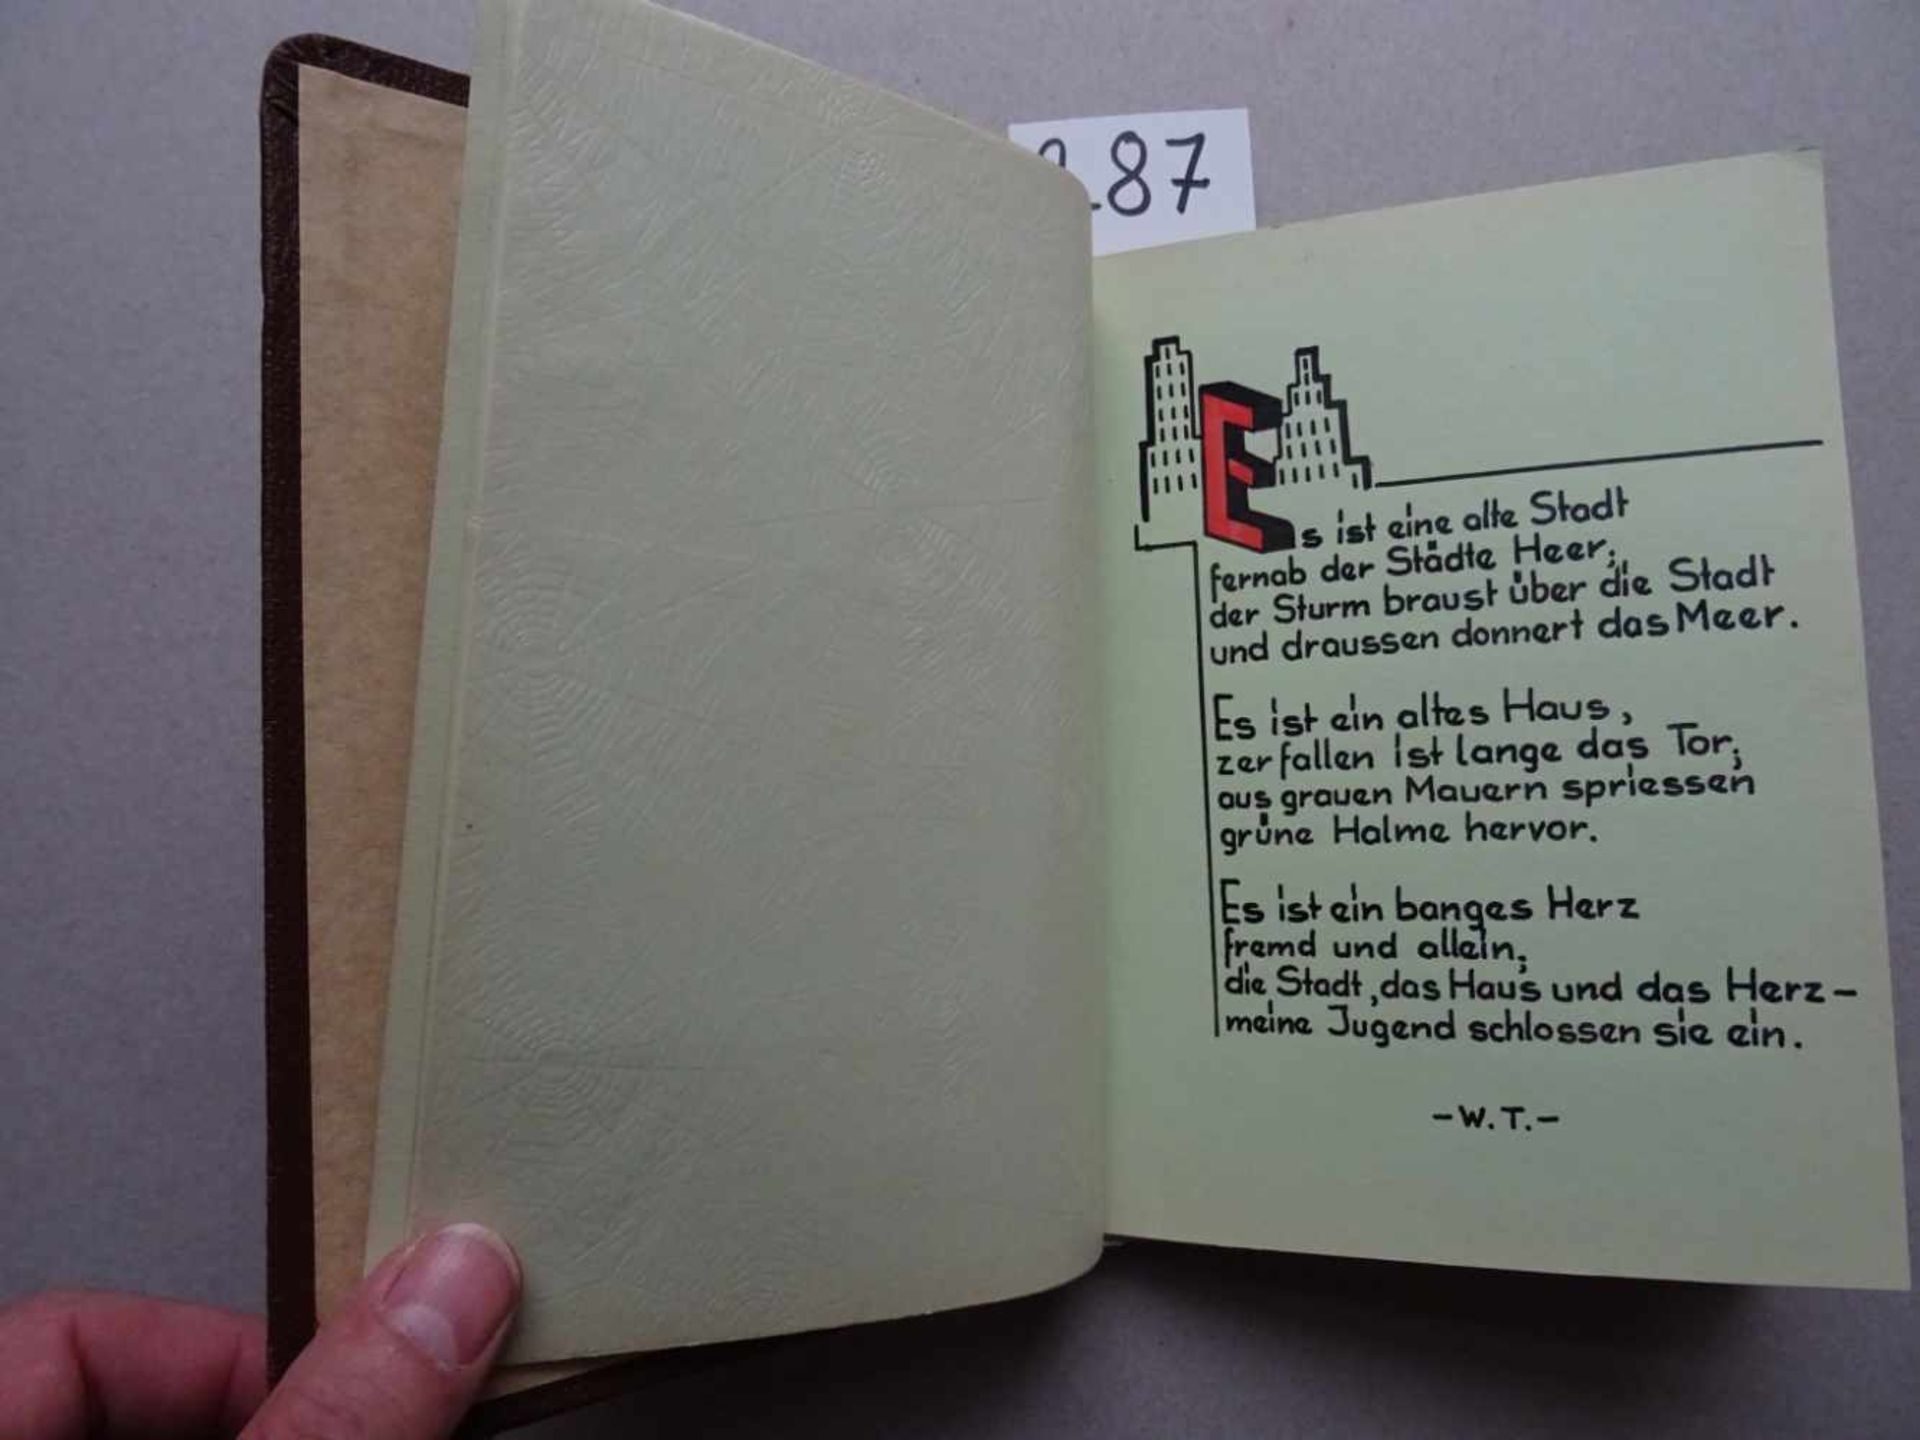 87
Es ist eine alte Stadt
fernab der Städte Heer;
der Sturm braust über die Stadt
und draussen donnert das Meer.
Es ist ein altes Haus,
zerfallen ist lange das Tor;
aus grauen Mauern spriessen
grüne Halme hervor.
Es ist ein banges Herz
fremd und allein;
die Stadt, das Haus und das Herz–
meine Jugend schlossen sie ein.
–W.T.–